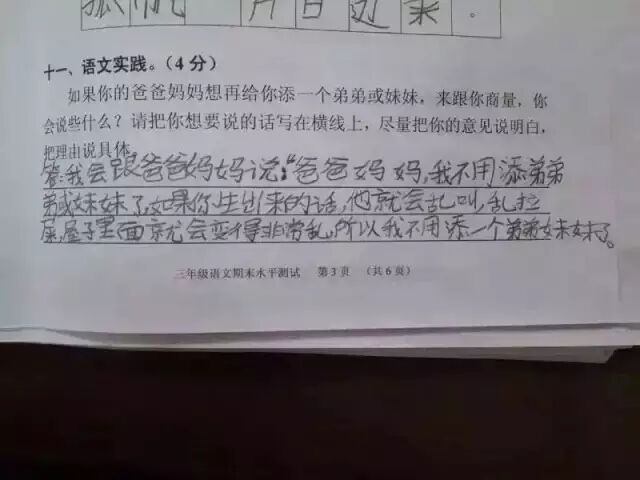 孤帆一片日边来。
十一、语文实践。(4分)
如果你的爸爸妈妈想再给你添一个弟弟或妹妹，来跟你商量，你
会说些什么？请把你想要说的话写在横线上，尽量把你的意见说明白，
把理由说具体。
答：我会跟爸爸妈妈说："爸爸妈妈，我不用添弟弟
弟或妹妹了，如果你生出来的话，他就会乱叫，乱拉
屎，屋子里面就会变得非常乱，所以我不用添一个弟弟妹妹了。
三年级语文期末水平测试 第3页 （共6页）